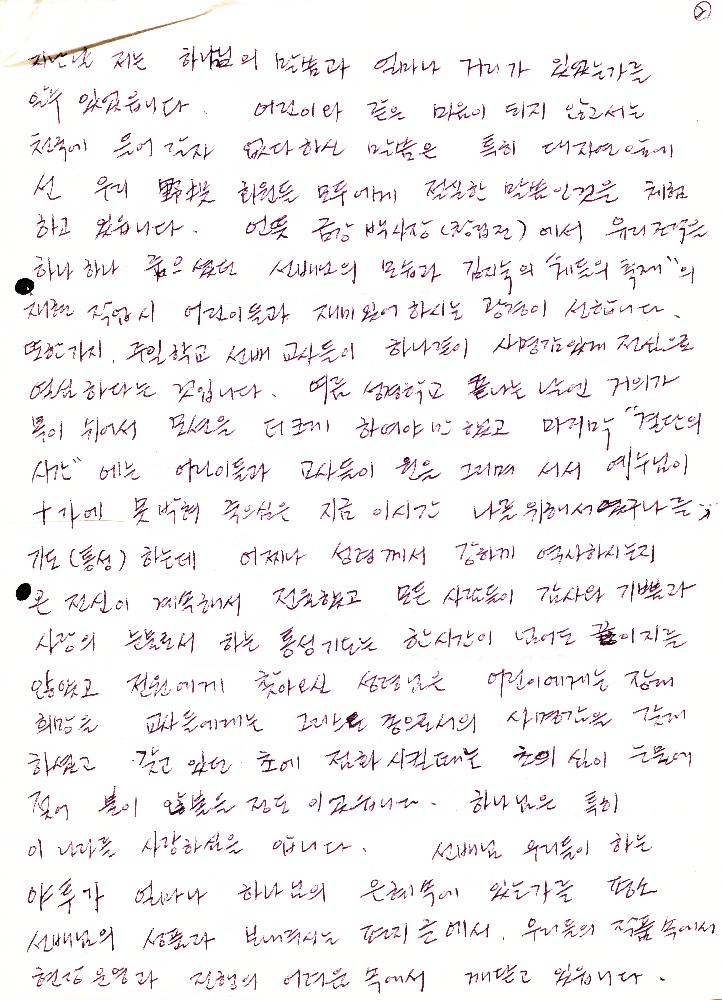 ②
지난날 저는 하나님의 말씀과 얼마나 거리가 있었는가를
알수 있었읍니다. 어린이와 같은 마음이 되지 않고서는
천국에 들어 갈자 없다 하신 말씀은 특히 대자연 앞에
선 우리 野投 회원들 모두에게 절실한 말씀인것을 체험
하고 있읍니다. 언뜻 금강 백사장 에서 유리조각을
하나 하나 줏으셨던 선배님의 모습과 김지숙의 의
재현 작업시 어린이들과 재미있어 하시는 광경이 선합니다.
또한가지, 주일학교 선배 교사들이 하나같이 사명감있게 전심으로
열심 하다는 것입니다. 여름 성경학교 끝나는 날엔 거의가
목이 쉬어서 모션을 더 크게 하여야만 했고 마지막 "결단의
시간"에는 어린이들과 교사들이 원을 그리며 서서 예수님이
十가에 못박혀 죽으심은 지금 이시간 나를 위해서
기도(통성) 하는데 어찌나 성령께서 강하게 역사하시는지
온 전신이 계속해서 전율했고 모든 사람들이 감사와 기쁨과
사랑의 눈물로서 하는 통성기도는 한시간이 넘어도 끝이지를
않았고 전원에게 찾아오신 성령님은 어린이에게는 장래
희망을 교사들에게는 그리스도 종으로서의 사명감을 갖게
하셨고 갖고 있던 초에 점화 시킬때는 초의 심이 눈물에
젖어 불이 않붙을 정도 이었읍니다. 하나님은 특히
이 나라를 사랑하심을 압니다. 선배님 우리들이 하는
야투가 얼마나 하나님의 은혜속에 있는가를 평소
선배님의 성품과 보내주시는 편지 글에서, 우리들의 작품 속에서
현장 운영과 진행의 어려움 속에서 깨닫고 있읍니다.